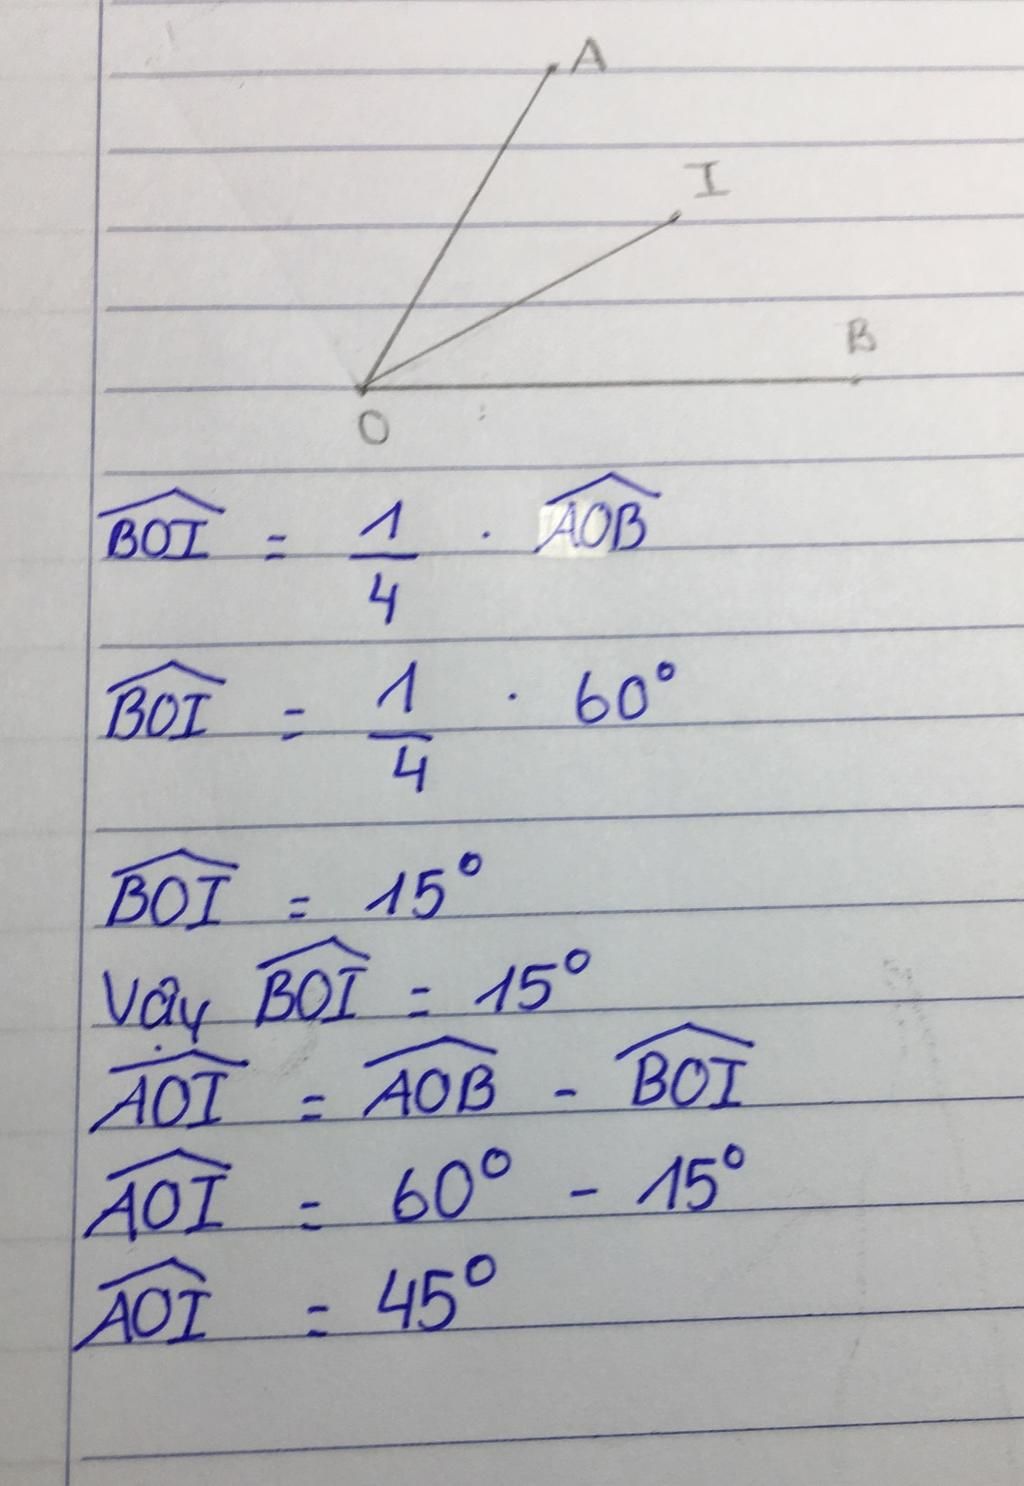 A
I
B
O
BOI^ = 1/4 . AOB^
BOI^ = 1/4 . 60°
BOI^ = 15°
Vậy BOI^ = 15°
AOI^ = AOB^ - BOI^
AOI^ = 60° - 15°
AOI^ = 45°